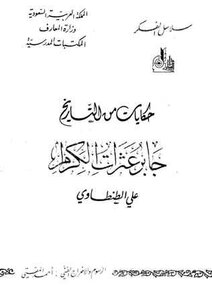 المملكة العربية السعودية
وزارة المعارف
المكتبات المدرسية
حكايات من التاريخ
جابر عثرات الكرام
علي الطنطاوي
الرسوم والإخراج الفني :